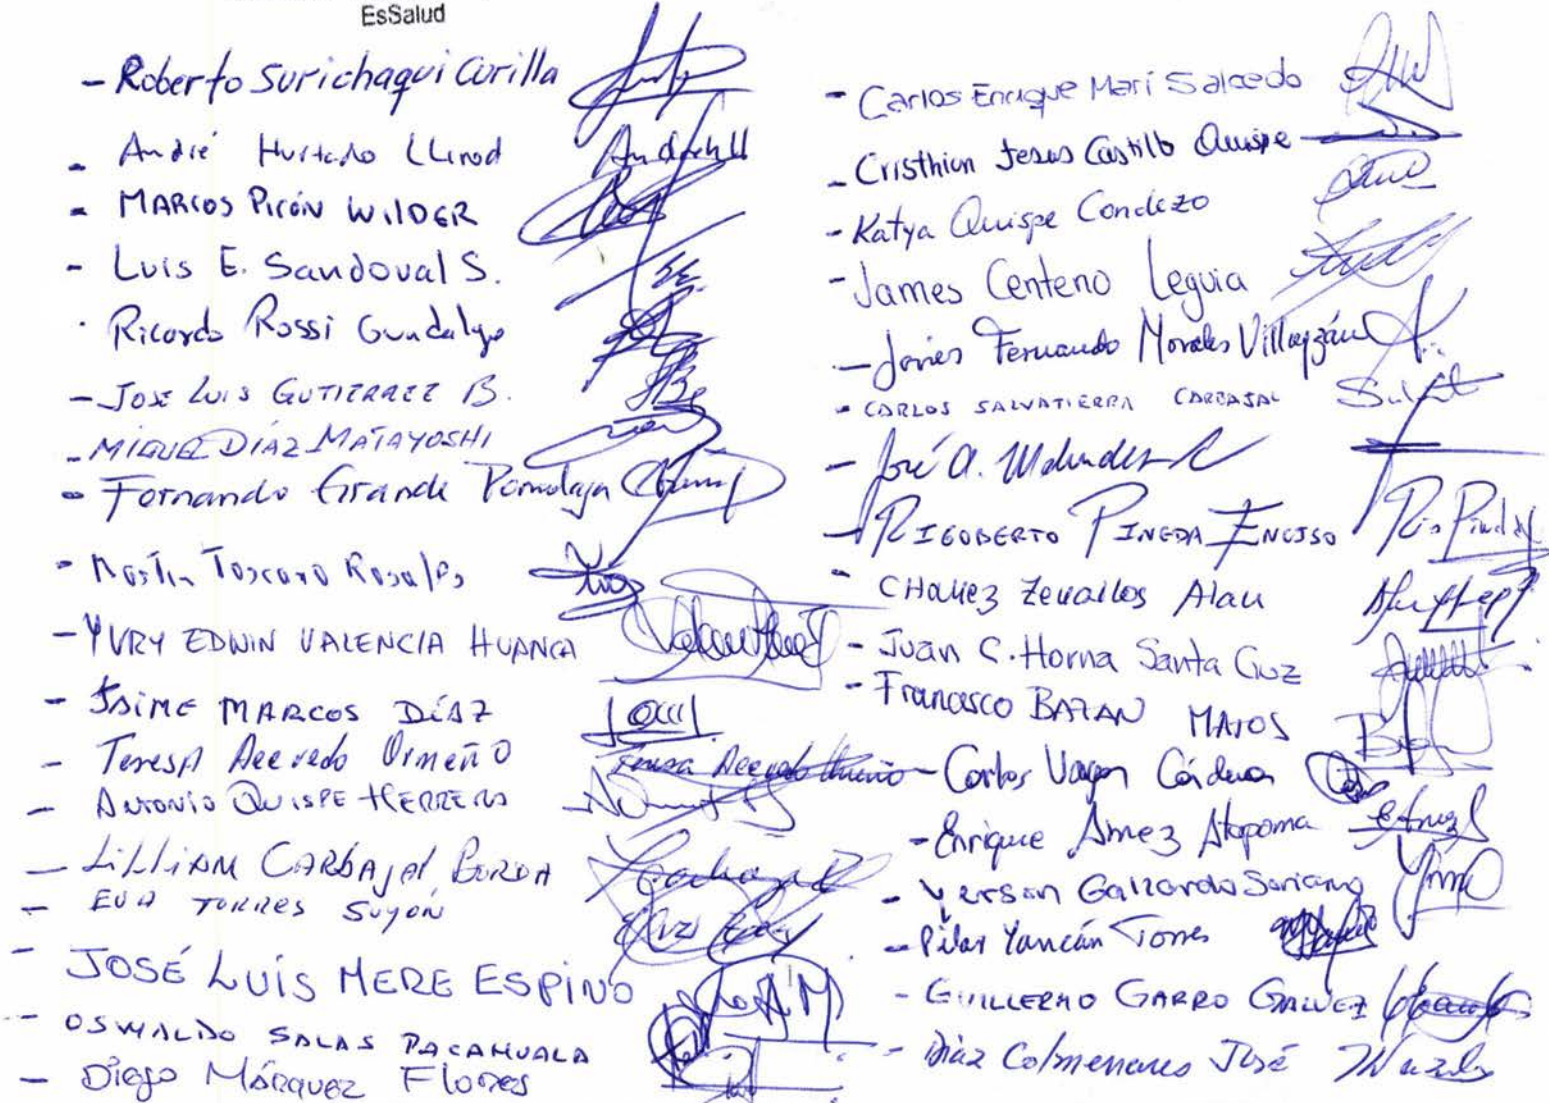 EsSalud
- Roberto Surichaqui Curilla
- André Hurtado Llerod
- MARCOS PICÓN WILDER
- Luis E. Sandoval S.
· Ricardo Rossi Gundalgo
- JOSE LUIS GUTIERREZ B.
- MIGUEL DIAZ MATAYOSHI
- Fernando Grande Pomalaya
- Martín Toscano Rosales
- YURY EDWIN VALENCIA HUANCA
- JAIME MARCOS DÍAZ
- Teresa Acevedo Ormeño Teresa Acevedo Ormeño
- ANTONIO QUISPE HERRERA
- LILLIAM CARBAJAL BORDA
- EVA TORRES SUYÓN
- JOSÉ LUÍS MERE ESPINO
- OSWALDO SALAS PACAHUALA
- Diego Márquez Flores
- Carlos Enrique Mari Salcedo
- Cristhian Jesus Castillo Quispe
- Katya Quispe Condezo
- James Centeno Leguia
- Javier Fernando Morales
- CARLOS SALVATIERRA CARBAJAL
- José A.
- RIGOBERTO PINEDA ENCISO
- CHAVEZ Zevallos Alan
- Juan C. Horna Santa Cruz
- Francisco BAZAN MATOS
- Carlos Cárdenas
- Enrique Amez Atapoma
- Yerson Gallardo Soriano
- Pilar Yancán Torres
- GUILLERMO GARRO GALVEZ
- Díaz Colmenares José